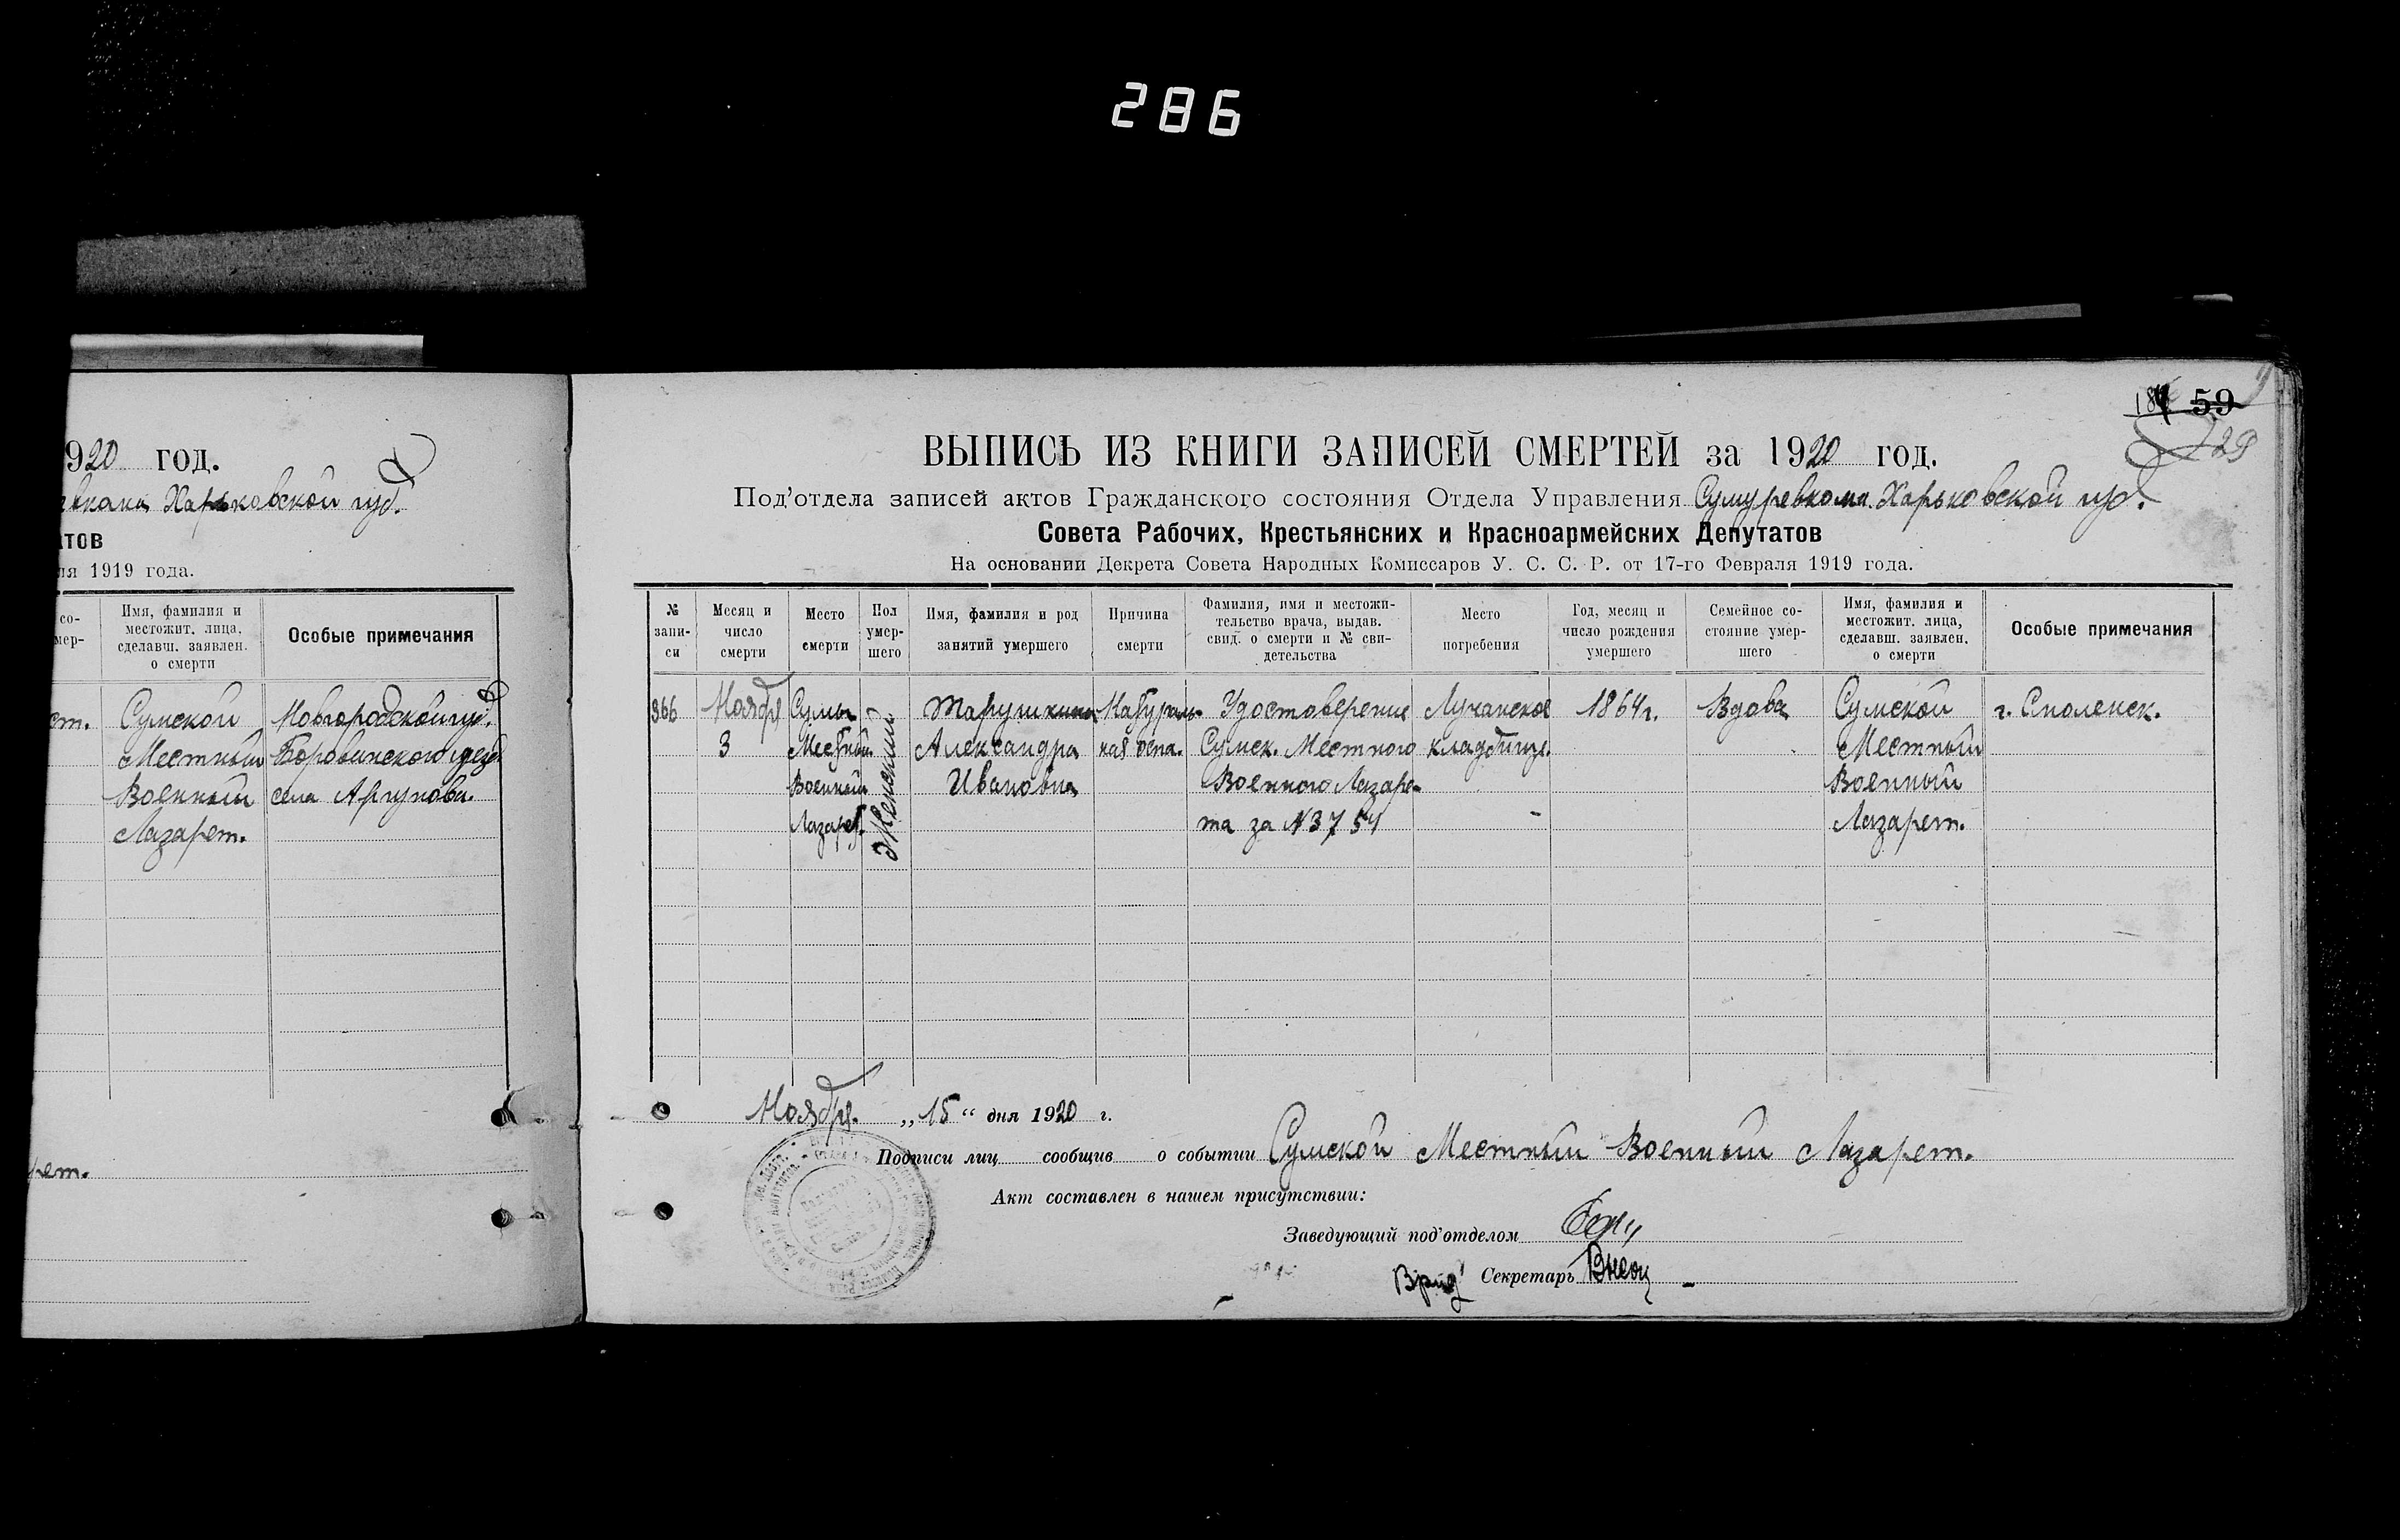 286
920 год.
Харьковской губ.
тов
ля 1919 года.
со-
мер-
Имя, фамилия и
местожит. лица,
сделавш. заявлен.
о смерти
Особые примечания
ст.
Сумской
Местный
Военный
Лазарет.
Новгородской губ.
Боровинского уезд
села
рет.
59
ВЫПИСЬ ИЗ КНИГИ ЗАПИСЕЙ СМЕРТЕЙ за 1920 год.
Под'отдела записей актов Гражданского состояния Отдела Управления Сумуревкома Харьковской губ.
Совета Рабочих, Крестьянских и Красноармейских Депутатов
На основании Декрета Совета Народных Комиссаров У. С. С. Р. от 17-го Февраля 1919 года.
№
запи-
си
Месяц и
число
смерти
Место
смерти
Пол
умер-
шего
Имя, фамилия и род
занятий умершего
Причина
смерти
Фамилия, имя и местожи-
тельство врача, выдав.
свид. о смерти и № сви-
детельства
Место
погребения
Год, месяц и
число рождения
умершего
Семейное со-
стояние умер-
шего
Имя, фамилия и
местожит. лица,
сделавш. заявлен.
о смерти
Особые примечания
366
Ноябр
3
Сумы
Местный
Военный
Лазарет.
Женский
Тарушкина
Александра
Ивановна
Натураль-
ная оспа.
Удостоверение
Сумск. Местного
Военного Лазаре-
та за N 3754
Лучанское
кладбище.
1864 г.
Вдова
Сумской
Местный
Военный
Лазарет.
г. Смоленск.
Ноября. „15“ дня 1920 г.
Подписи лиц сообщив о событии Сумской Местный Военный Лазарет.
Акт составлен в нашем присутствии:
Заведующий под'отделом
Врид Секретарь